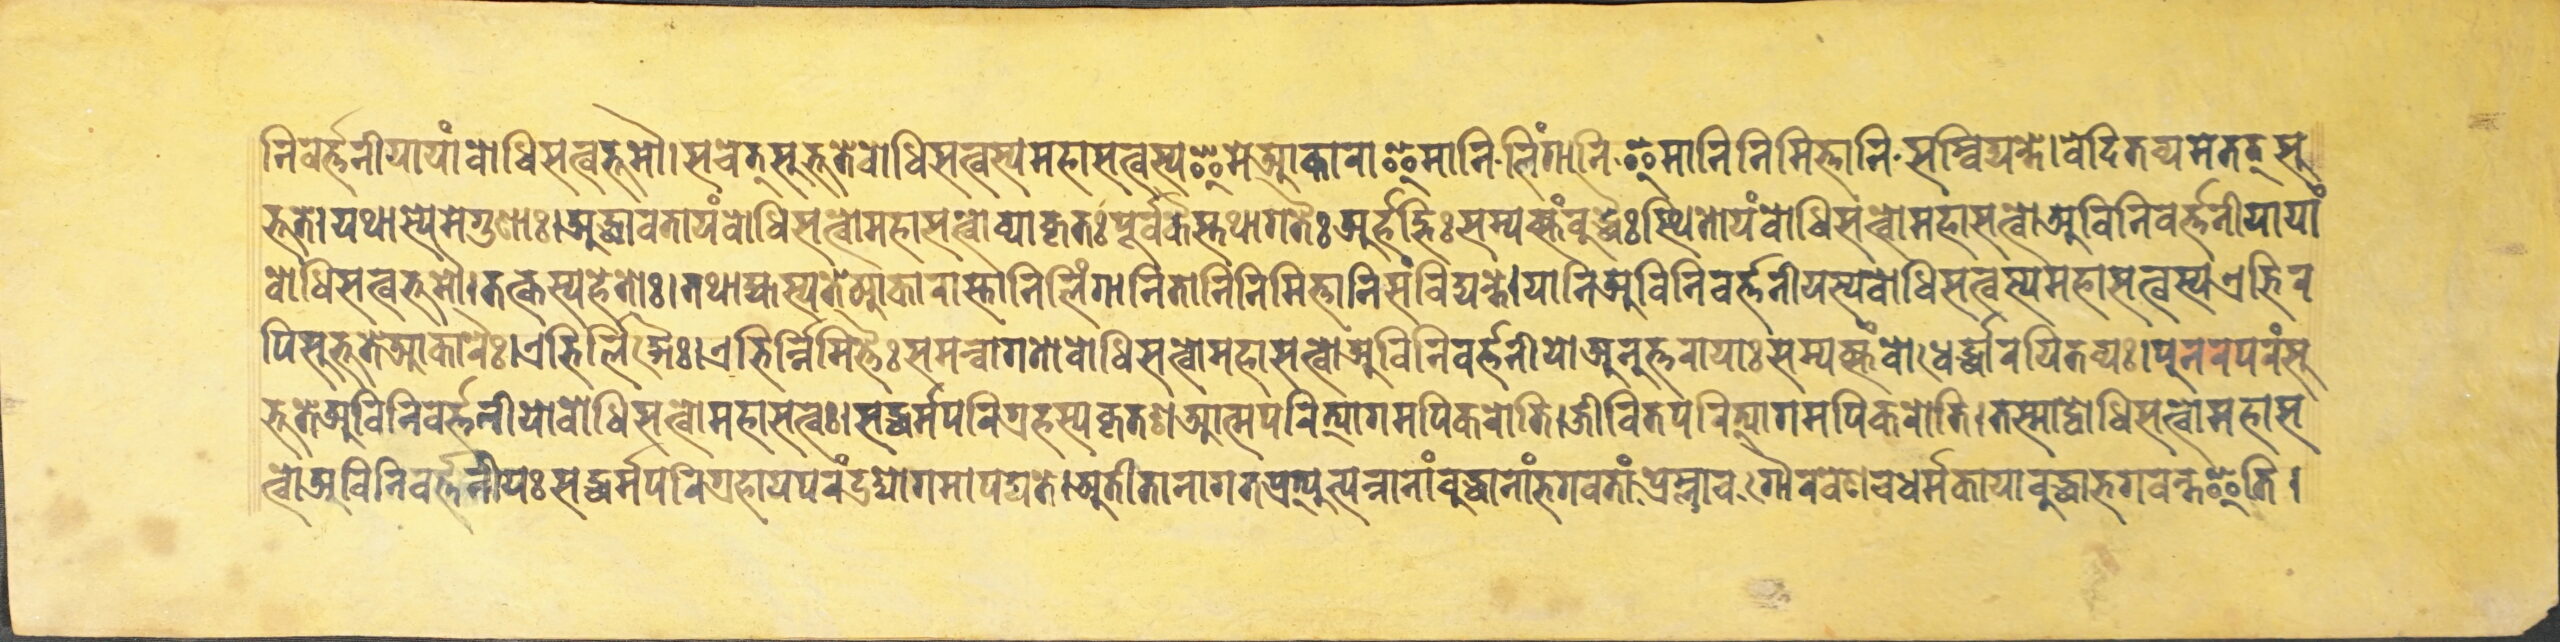 निवर्त्तनीयायां वोधिसत्वभूमौ। सचेत् सुभूते वोधिसत्वस्य महासत्वस्य इमे आकारा इमानि लिंगानि इमानि निमित्तानि सम्विद्यन्ते। वेदितव्यमेतत् सु
भूते। यथास्येमे गुणाः। अद्धावतायं वोधिसत्वो महासत्वो व्याकृतः पूर्वकैस्तथागतैः अर्हद्भिः सम्यक्संवुद्धैः स्थितोयं वोधिसत्वो महासत्वो अविनिवर्त्तनीयायां
वोधिसत्वभूमौ। तत्कस्य हेतोः। तथाह्यस्य ते आकारास्तानि लिंगानि तानि निमित्तानि संविद्यन्ते। यानि अविनिवर्त्तनीयस्य वोधिसत्वस्य महासत्वस्य एभिर
पि सुभूते आकारैः। एभिर्लिङ्गैः। एभिर्न्निमित्तैः समन्वागतो वोधिसत्वो महासत्वो अविनिवर्त्तनीयो अनुत्तरायाः सम्यक्संवोधेर्द्धारयितव्यः। पुनरपरं सु
भूते अविनिवर्त्तनीयो वोधिसत्वो महासत्वः। सद्धर्मपरिग्रहस्य कृतश आत्मपरित्यागमपि करोति। जीवितपरित्यागमपि करोति। तस्माद्वोधिसत्वो महास
त्वो अविनिवर्त्तनीयः सद्धर्मपरिग्रहाय परं उद्योगमापद्यते। अतीतानागतप्रत्युत्पन्नानां वुद्धानां भगवतां प्रेम्नाच गौरवेण च धर्मकाया वुद्धा भगवन्त इति।